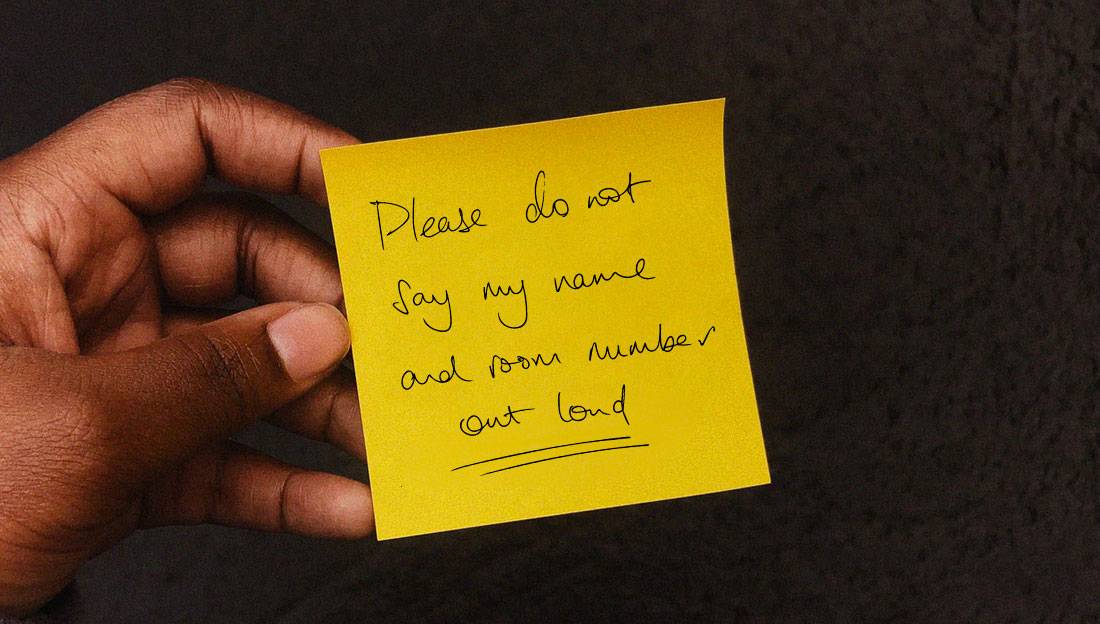 Please do not
say my name
and room number
out loud